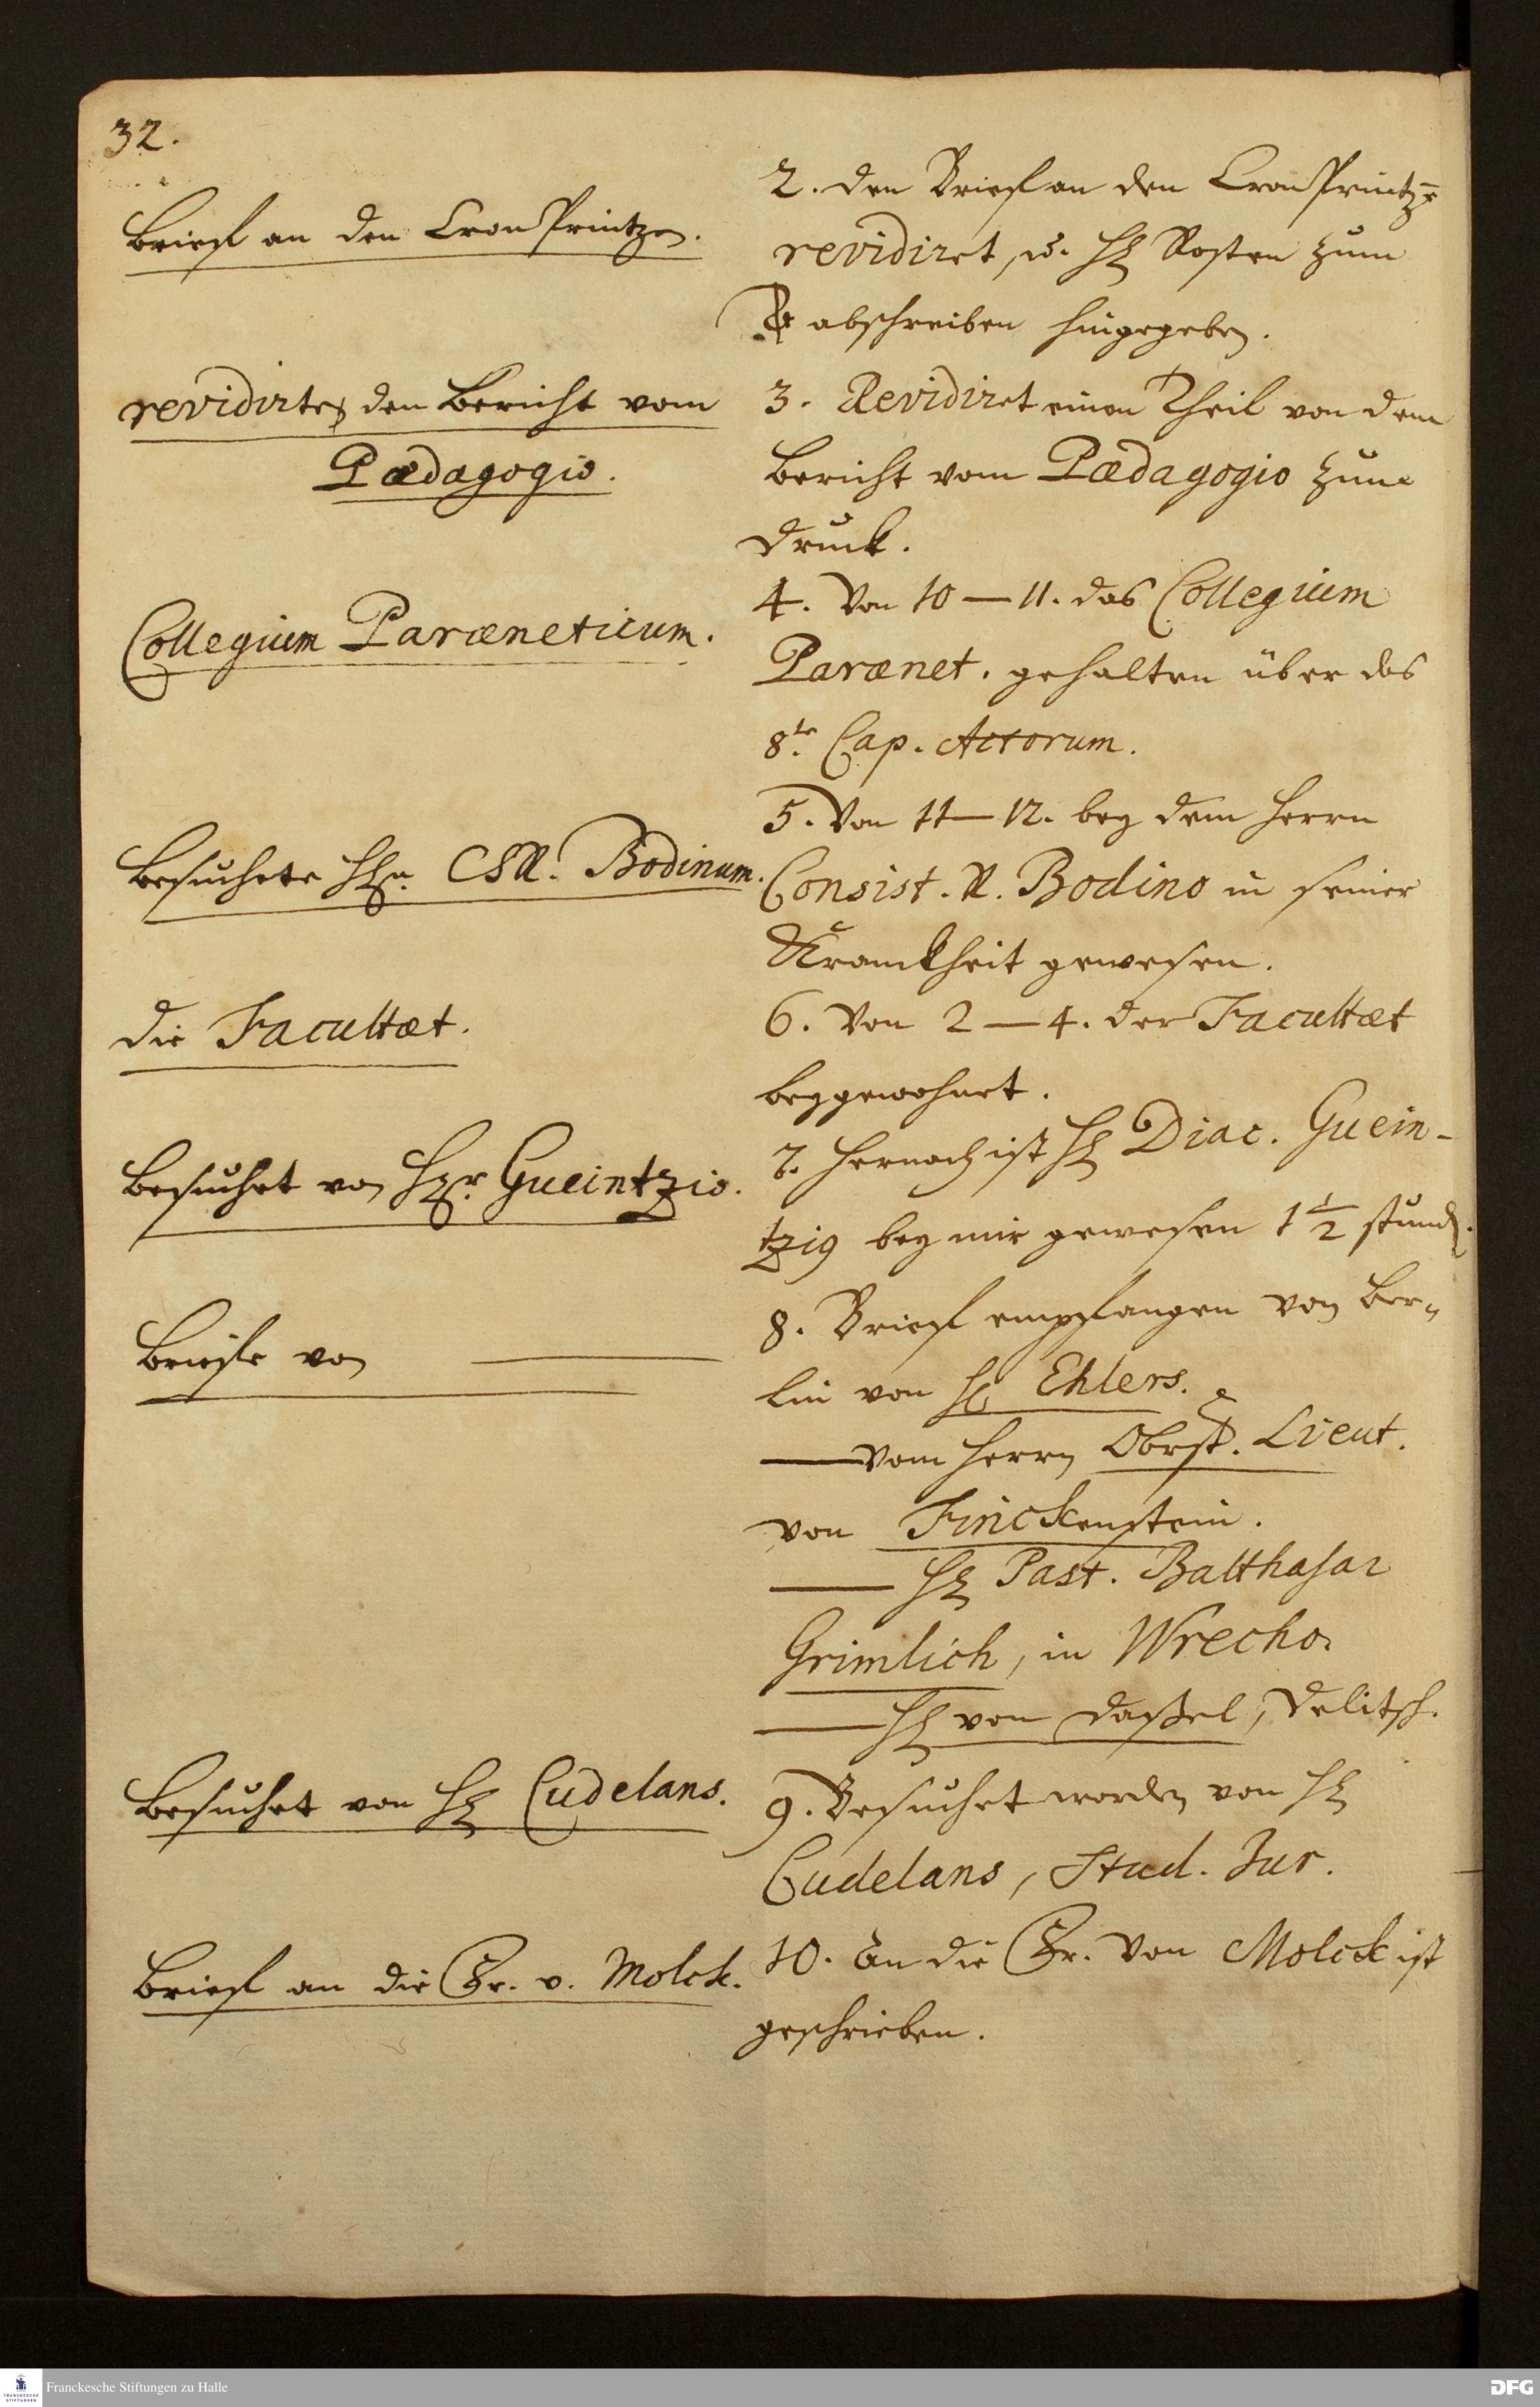 32.
Brieff an den Cron Printzen.
2. den Brieff an den Cron Printzē
revidiret, u. H. Rosten zum
abschreiben hingegeben.
revidirte den Bericht vom
Pædagogio.
3. Revidiret einen Theil von dem
Bericht vom Pædagogio zum
Druck.
Collegium Paræneticum.
4. Von 10–11. das Collegium
Parænet. gehalten über das
8te Cap. Actorum.
Besuchete Hn. CSR. Bodinum.
5. Von 11–12. bey dem Herrn
Consist. R. Bodino in seiner
Kranckheit gewesen.
die Facultæt.
6. Von 2–4. der Facultæt
beygewohnet.
Besuchet von Hr. Gueintzio.
7. Hernach ist H. Diac. Guein-
tzig bey mir gewesen 1 1/2 stund.
Brieffe von ——
8. Brieff empfangen von Ber-
lin von H. Ehlers.
—— vom Herrn Obrst. Lieut.
von Finckenstein.
—— H. Past. Balthasar
Grimlich, in Wrecho
—— H. von Daßel, Delitsch.
Besuchet von H. Cudelans.
9. Besuchet worden von H.
Cudelans, Stud. Jur.
Brieff an die Fr. v. Molck.
10. An die Fr. von Molck ist
geschrieben.
Franckesche Stiftungen zu Halle
FRANCKESCHE STIFTUNGEN
DFG